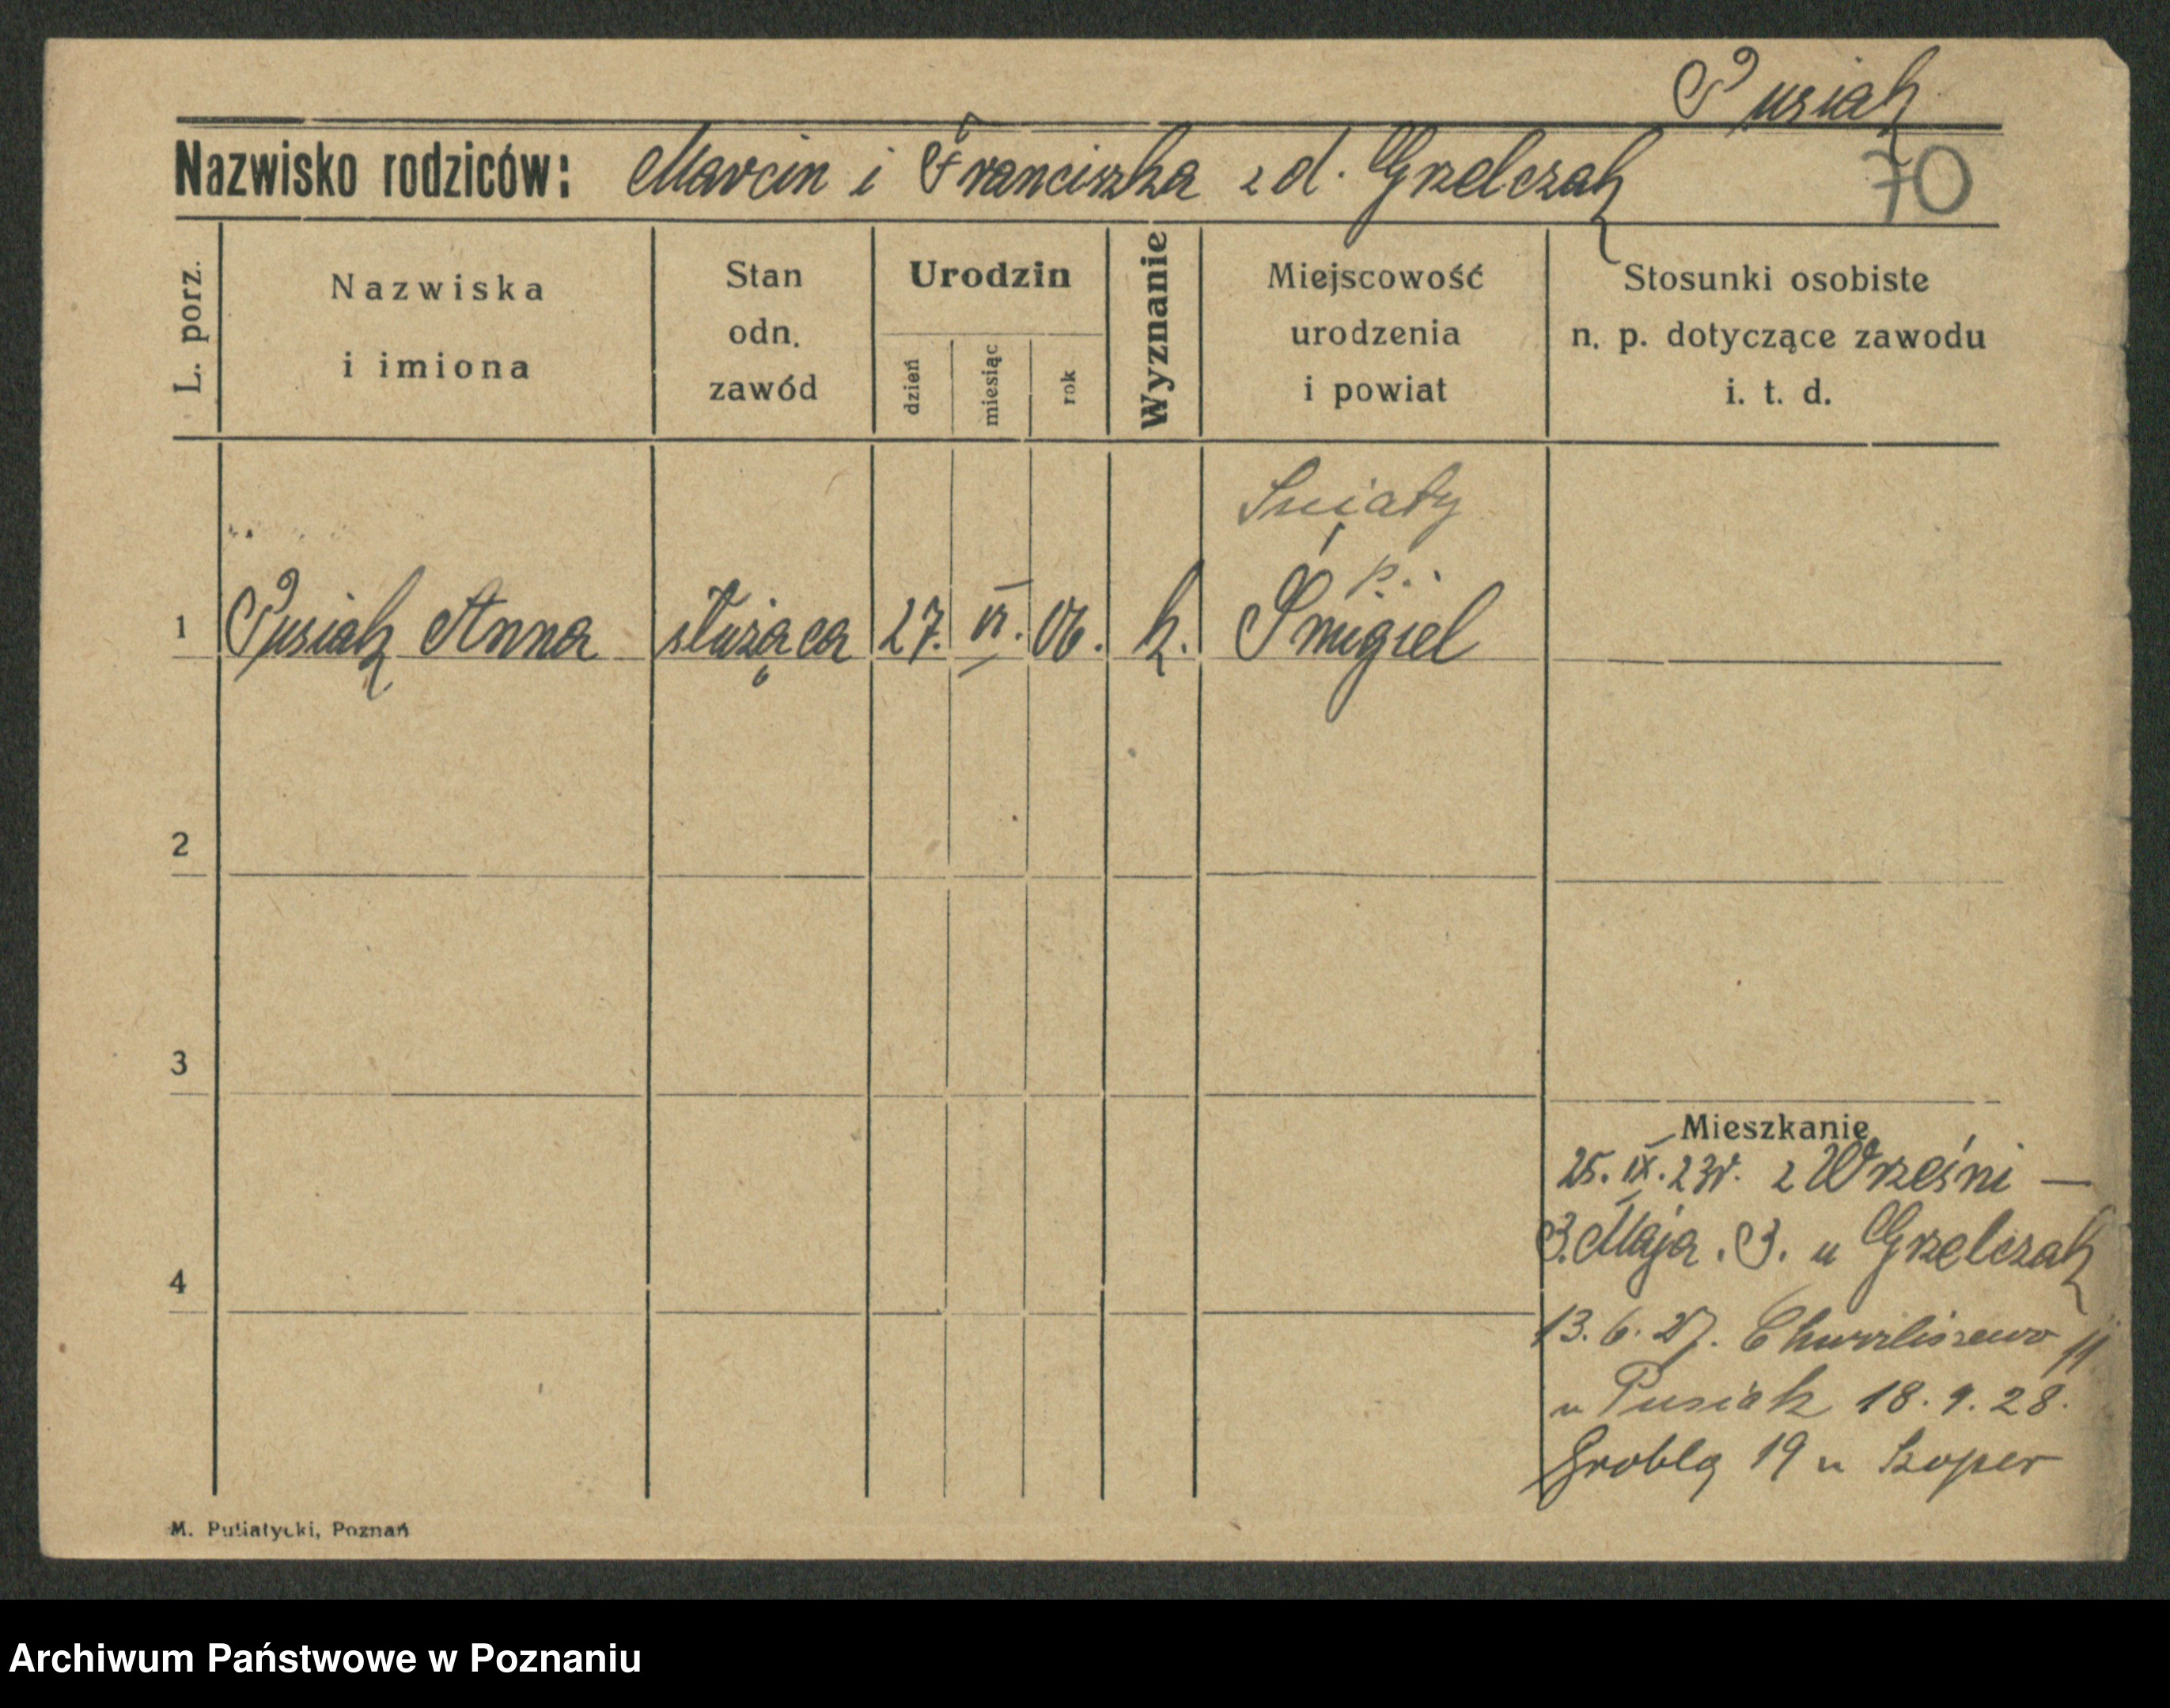 Pusiak
Nazwisko rodziców: Marcin i Franciszka z d. Grzelczak
70
L. porz.
Nazwiska
i imiona
Stan
odn.
zawód
Urodzin
dzień
miesiąc
rok
Wyznanie
Miejscowość
urodzenia
i powiat
Stosunki osobiste
n. p. dotyczące zawodu
i. t. d.
Śniaty
p.
1 Pusiak Anna służąca 27. VI. 06. k. Śmigiel
2
3
4
Mieszkanie
25. IX. 23r. z Wrześni —
3. Maja. 3. u Grzelczak
13. 6. 27. Chwaliszewo 11
u Pusiak 18. 9. 28.
Grobla 19 u Szoper
M. Putiatycki, Poznań
Archiwum Państwowe w Poznaniu